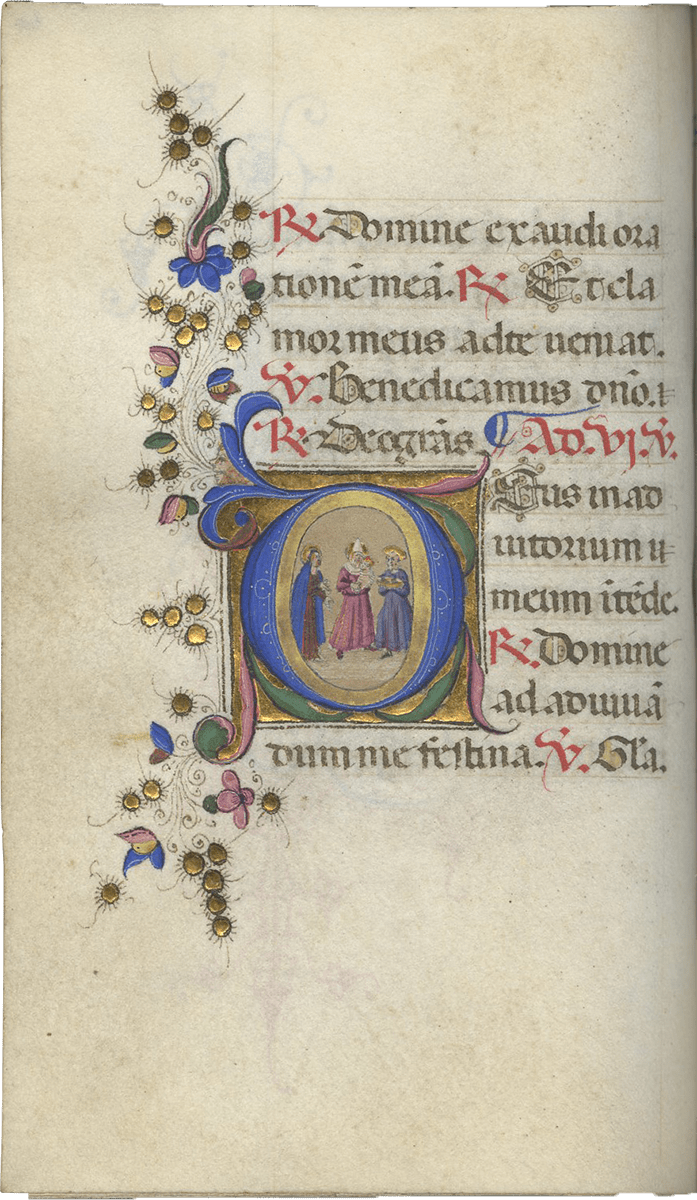 ℟ Domine exaudi ora
tionē meā. ℟ Et cla
mor meus ad te ueniat.
℣. Benedicamus dn̄o.
℟. Deo gr̄as. Ad. vj. ℣.
Deus in ad
iutorium
meum ītēde.
℟. Domine
ad adiuuā
dum me festina. ℣. Gl̄a.